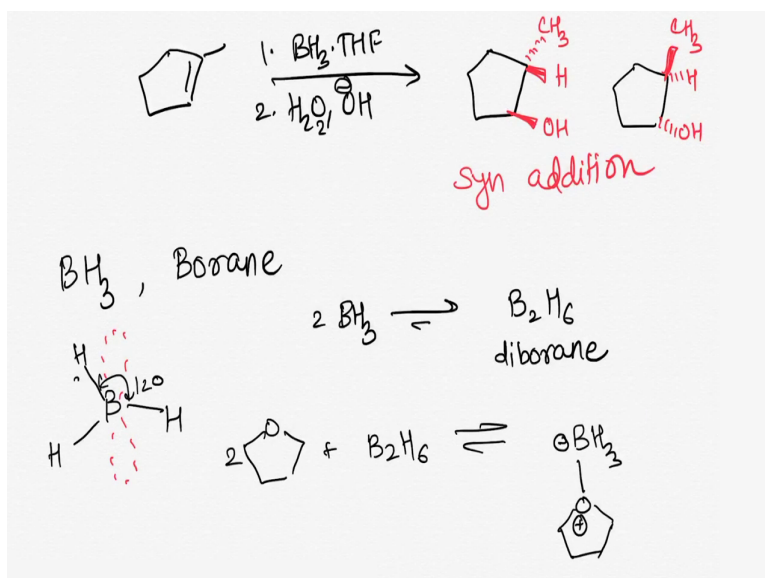 1. BH₃·THF
2. H₂O₂, ⊖OH
CH₃
H
OH
CH₃
H
OH
syn addition
BH₃, Borane
2 BH₃ ⇌ B₂H₆
diborane
H
120
B
H
H
2 O + B₂H₆ ⇌ ⊖BH₃
O
⊕